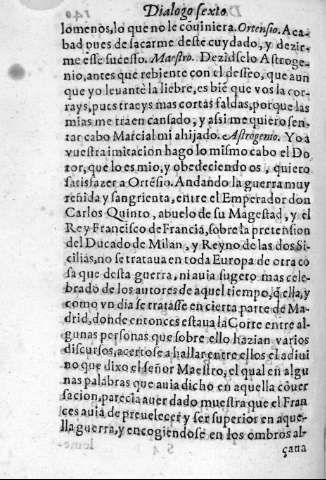 Dialogo sexto.
lomenos, lo que no le cõuiniera. Ortensio. Aca-
bad pues de sacarme deste cuydado, y dezir-
me esse sucesso. Maestro. Dezidselo Astroge-
nio, antes que rebiente con el desseo, que aun
que yo leuantè la liebre, es biẽ que vos la cor-
rays, pues traeys mas cortas faldas, porque las
mias me traen cansado, y assi me quiero sen-
tar cabo Marcial mi ahijado. Astrogenio. Yo a
vuestra imitacion hago lo mismo cabo el Do-
tor, que lo es mio, y obedeciendo os, quiero
satisfazer a Ortẽsio. Andando la guerra muy
reñida y sangrienta, entre el Emperador don
Carlos Quinto, abuelo de su Magestad, y el
Rey Francisco de Francia, sobre la pretension
del Ducado de Milan, y Reyno de las dos Si-
cilias, no se trataua en toda Europa de otra co
sa que desta guerra, ni auia sugeto mas cele-
brado de los autores de aquel tiempo, q̃ ella, y
como vn dia se tratasse en cierta parte de Ma-
drid, donde entonces estaua la Corte entre al-
gunas personas que sobre ello hazian varios
discursos, acertose a hallar entre ellos el adiui
no que dixo el señor Maestro, el qual en algu
nas palabras que auia dicho en aquella cõuer
sacion, parecia auer dado muestra que el Fran
ces auia de preualecer y ser superior en aque-
lla guerra, y encogiendose en los ombros al-
çaua